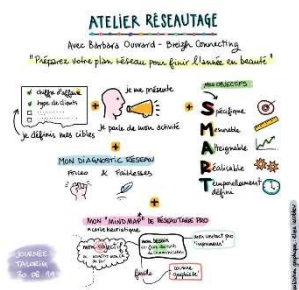 ATELIER RÉSEAUTAGE
Avec Barbara Ouvrard - Breizh Connecting
"Préparez votre plan réseau pour finir l'année en beauté"
MES OBJECTIFS
chiffre d'affaires
types de clients
je définis mes cibles
+
je me présente
je parle de mon activité
+
SMART
Spécifique
Mesurable
Atteignable
Réalisable
Temporellement défini
+
MON DIAGNOSTIC RÉSEAU
Forces & Faiblesses
+
MON "MIND MAP" DE RÉSEAUTAGE PRO
= carte heuristique
mon objectif
mon besoin
mon contact pro
"imprimeur"
JOURNÉE
TALORIG
30.08.19